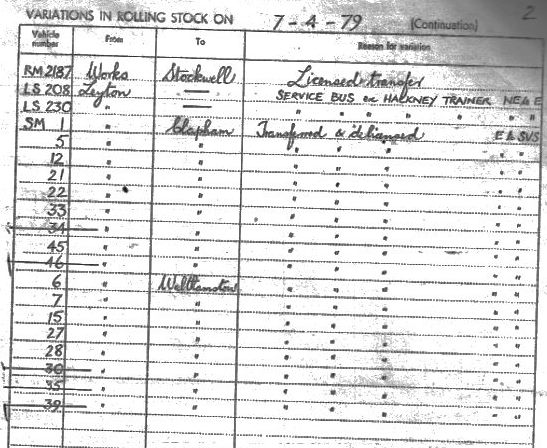 2
VARIATIONS IN ROLLING STOCK ON 7-4-79 (Continuation)
Vehicle number From To Reason for variation
RM 2187 Works Stockwell Licensed transfer
LS 208 Leyton — SERVICE BUS ex HACKNEY TRAINER NE & E
LS 230 " — " " " " " "
SM 1 " Clapham Transferred & delicensed E & SVS
5 " " " " " " "
12 " " " " " " "
21 " " " " " " "
22 " " " " " " "
33 " " " " " " "
34 " " " " " " "
45 " " " " " " "
46 " " " " " " "
6 " Walthamstow " " " " "
7 " " " " " " "
15 " " " " " " "
27 " " " " " " "
28 " " " " " " "
30 " " " " " " "
35 " " " " " " "
39 " " " " " " "